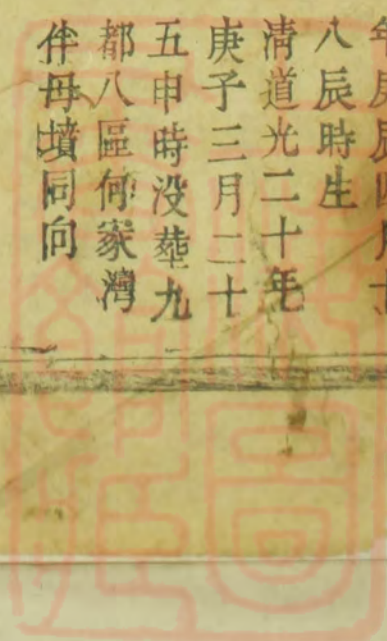 年庚辰四月十
八辰時生
清道光二十年
庚子三月二十
五申時没葬九
都八區何家灣
伴母墳同向